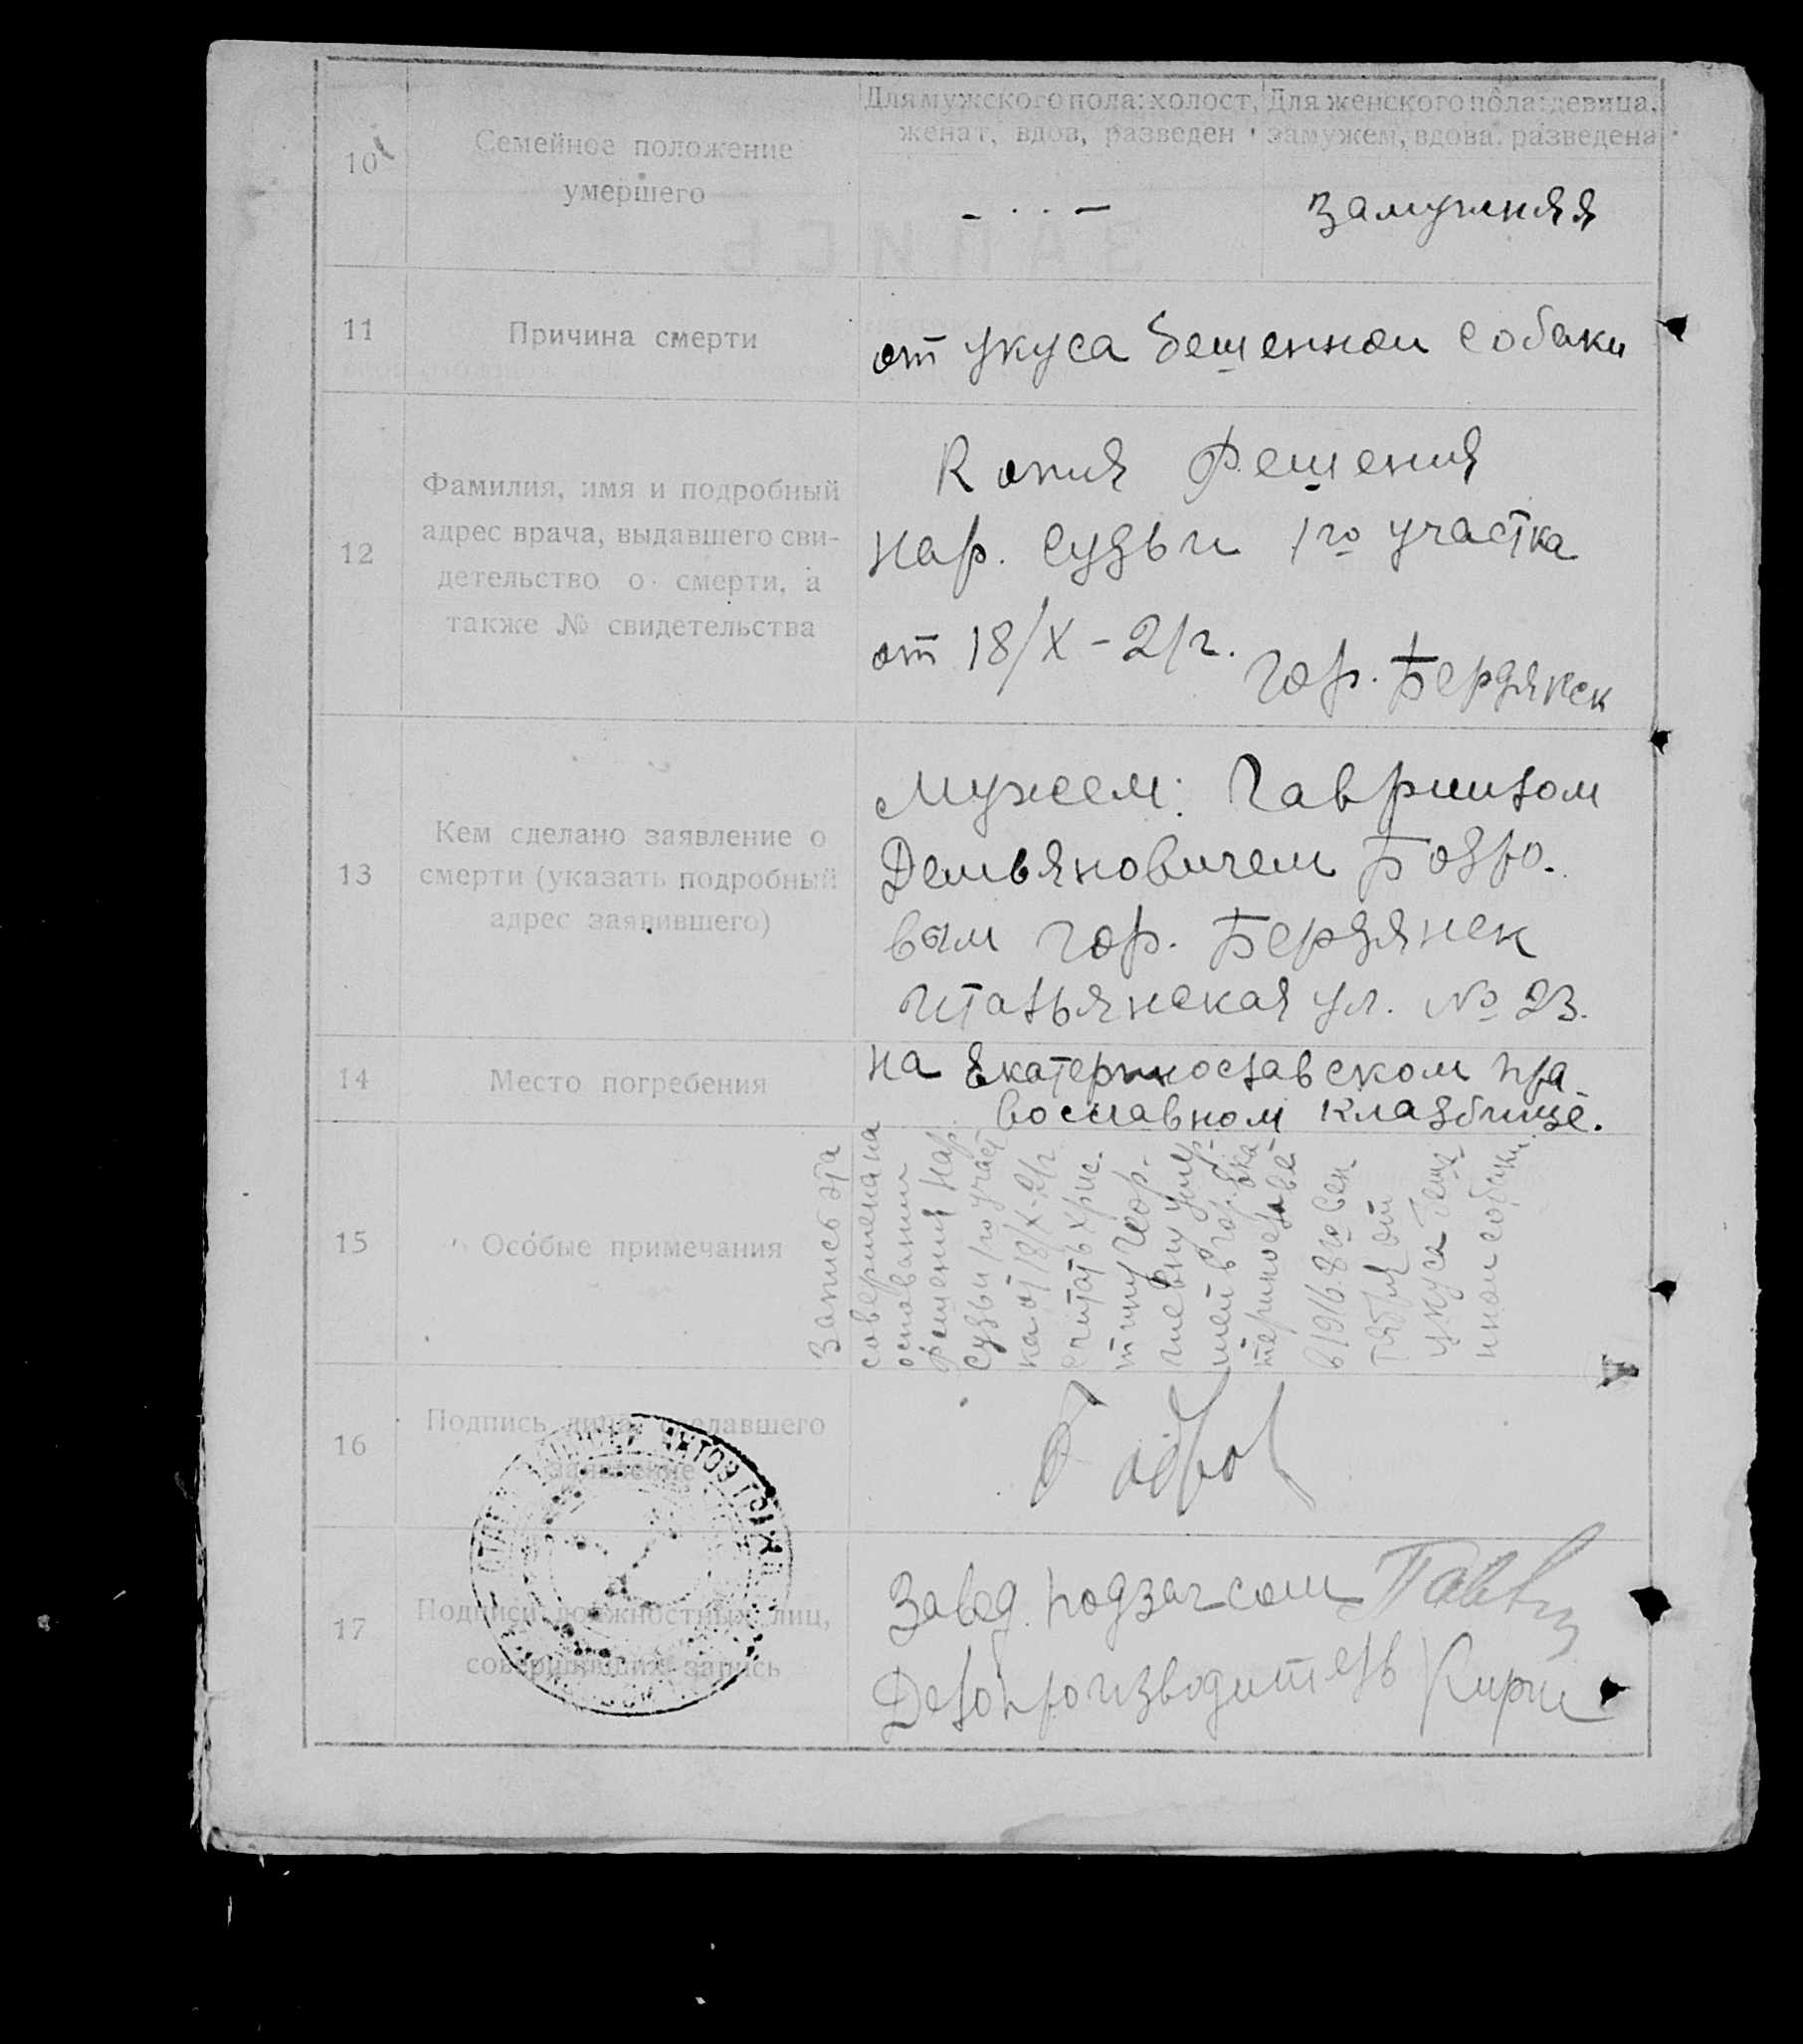 10
Семейное положение
умершего
Для мужского пола: холост,
женат, вдов, разведен
Для женского пола: девица,
замужем, вдова, разведена
замужняя
11
Причина смерти
от укуса бешенной собаки
12
Фамилия, имя и подробный
адрес врача, выдавшего сви-
детельство о смерти, а
также № свидетельства
Копия Решения
нар. судьи 1го участка
от 18/X - 21г.
гор. Бердянск
13
Кем сделано заявление о
смерти (указать подробный
адрес заявившего)
Мужем: Гавриилом
Демьяновичем Бодро-
вым гор. Бердянск
Итальянская ул. № 23.
14
Место погребения
на Екатеринославском пра-
вославном кладбище.
15
Особые примечания
Запись эта
совершена на
основании
решения Нар.
Судьи 1го участ
ка от 18/X-21г.
считать Хрис-
тину Геор-
гиевну умер-
шей в гор. Ека-
теринославе
в 1916. 8го Сен-
тября от
укуса беше
нной собаки
16
Подпись лица, сделавшего
заявление
Бодров
17
Подписи должностных лиц,
совершивших запись
Завед. подзагсом
Делопроизводитель